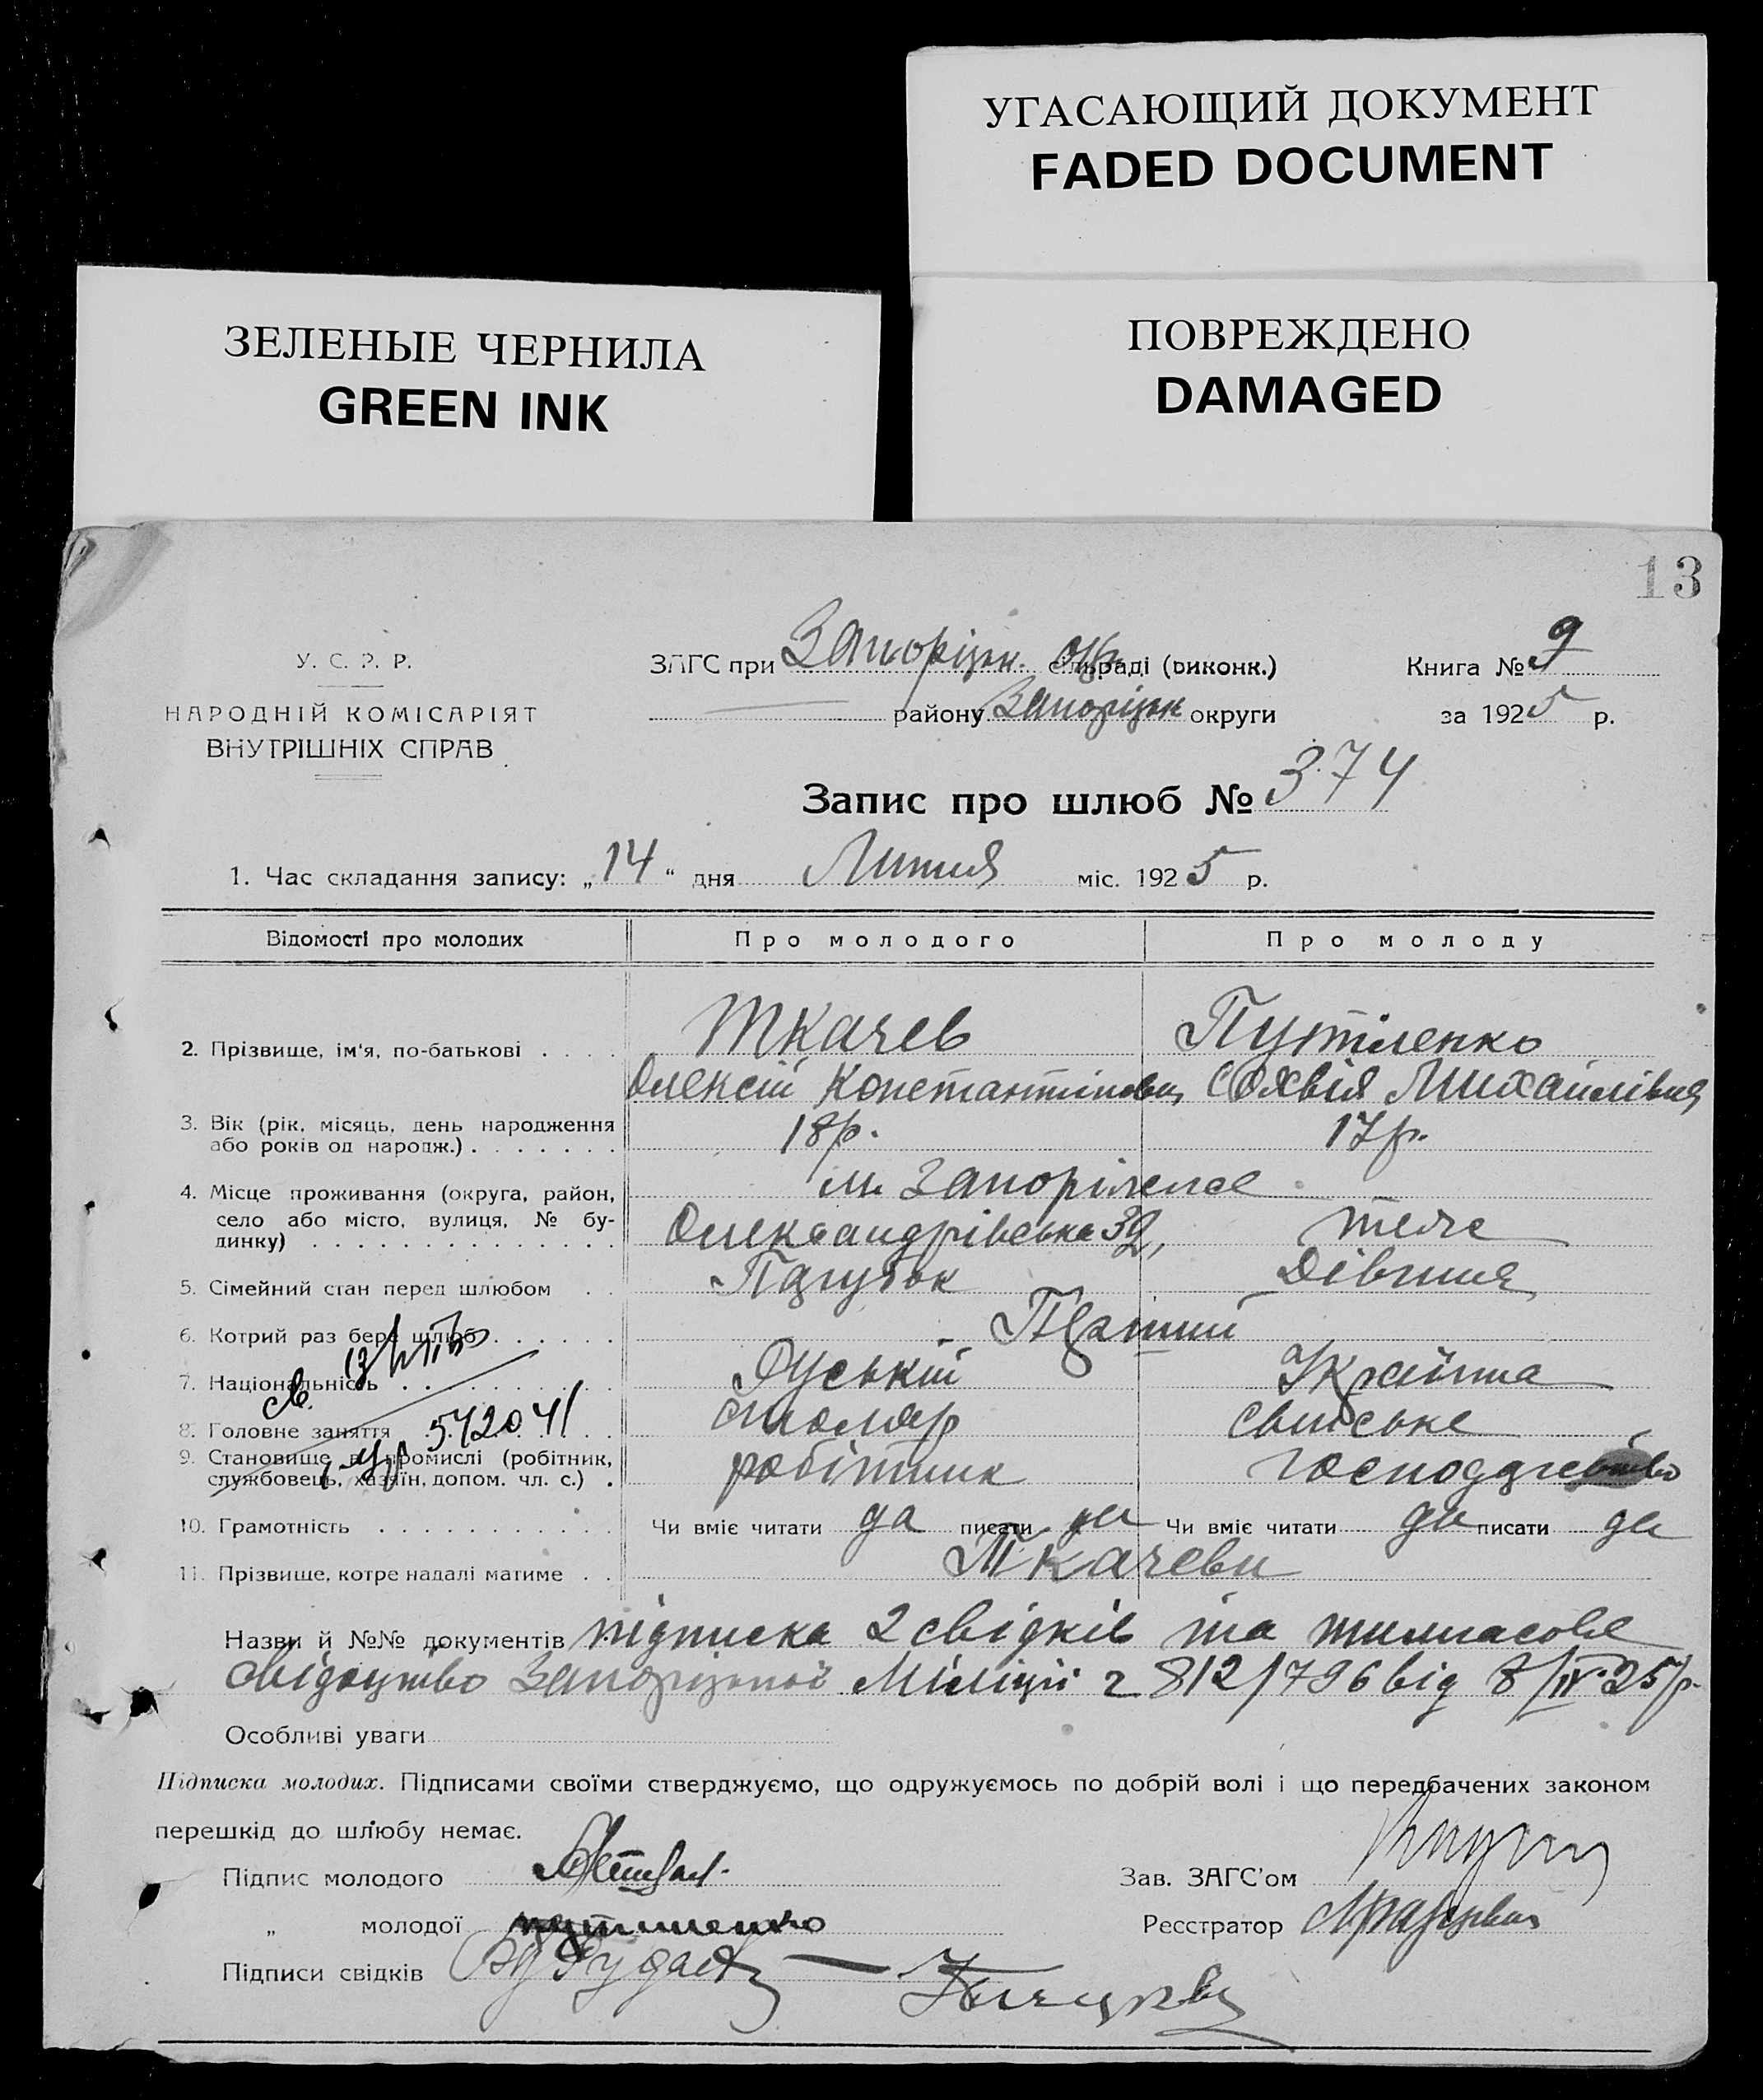 УГАСАЮЩИЙ ДОКУМЕНТ
FADED DOCUMENT
ЗЕЛЕНЫЕ ЧЕРНИЛА
GREEN INK
ПОВРЕЖДЕНО
DAMAGED
13
У. С. Р. Р.
НАРОДНІЙ КОМІСАРІЯТ
ВНУТРІШНІХ СПРАВ
ЗАГС при Запоріжж. Окр. сільраді (виконк.)
району Запоріжж округи
Книга № 9
за 1925 р.
Запис про шлюб № 374
1. Час складання запису: „14“ дня Липня міс. 1925 р.
Відомості про молодих Про молодого Про молоду
2. Прізвище, ім'я, по-батькові . . . . Ткачев Путіленко
Олексій Константінович Сохвія Михайлівна
3. Вік (рік, місяць, день народження або років од народж.) . . . . . . . 18р. 17р.
4. Місце проживання (округа, район, село або місто, вулиця, № будинку) . . . . . . . . . . . . . . м. Запоріжжє
Олександрівська 32, теж
5. Сімейний стан перед шлюбом . . Парубок Дівчина
6. Котрий раз бере шлюб . . . . . . Перший
7. Національність . . . . . . . . . . Руський Українка
8. Головне заняття . . . . . . столяр сельське
5/20 41
9. Становище в промислі (робітник, службовець, хазяїн, допом. чл. с.) . робітник господарство
10. Грамотність . . . . . . . . . . . Чи вміє читати да писати да Чи вміє читати да писати да
11. Прізвище, котре надалі матиме . . Ткачеви
Назви й №№ документів підписка 2 свідків та тимчасове
свідоцтво Запорізької Міліції 2 812/796 від 8/IV 25р.
Особливі уваги
Підписка молодих. Підписами своїми стверджуємо, що одружуємось по добрій волі і що передбачених законом
перешкід до шлюбу немає.
Підпис молодого
Зав. ЗАГС'ом
„ молодої путиленко
Ресстратор
Підписи свідків